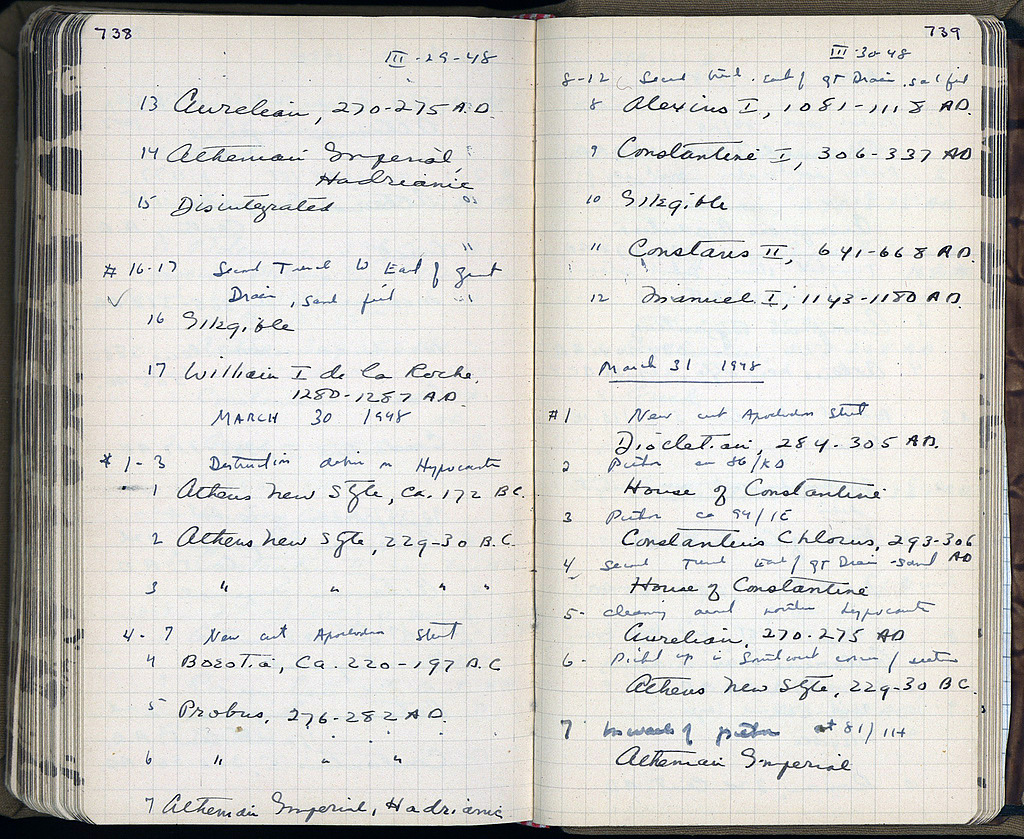 738
III-29-48
13 Aurelian, 270-275 A.D.
14 Athenian Imperial,
Hadrianic
15 Disintegrated
# 16-17 Second Trench to East of Great
Drain, sand fill
16 Illegible
17 William I de la Roche,
1280-1287 A.D.
MARCH 30 1948
* 1-3 Destruction debris on Hypocausts
1 Athens New Style, Ca. 172 B.C.
2 Athens New Style, 229-30 B.C.
3 " " " "
4-7 New cut Apododos Street
4 Boeotia, Ca. 220-197 B.C
5 Probus, 276-282 A.D.
6 " " "
7 Athenian Imperial, Hadrianic
739
III-30-48
8-12 Second trench. East of Gt Drain. sand fill
8 Alexius I, 1081-1118 AD.
9 Constantine I, 306-337 AD
10 Illegible
11 Constans II, 641-668 A.D.
12 Manuel I, 1143-1180 A.D.
March 31 1948
#1 New cut Street
Diocletian, 284-305 A.D.
2 86/ΚΔ
House of Constantine
3 ca 94/ΙΕ
Constantius Chlorus, 293-306 AD
4 Second Trench East of Gt Drain - sand
House of Constantine
5- Cleaning around northern hypocausts
Aurelian, 270-275 AD
6- Picked up in Southwest corner of section
Athens New Style, 229-30 B.C.
7 at 81/
Athenian Imperial